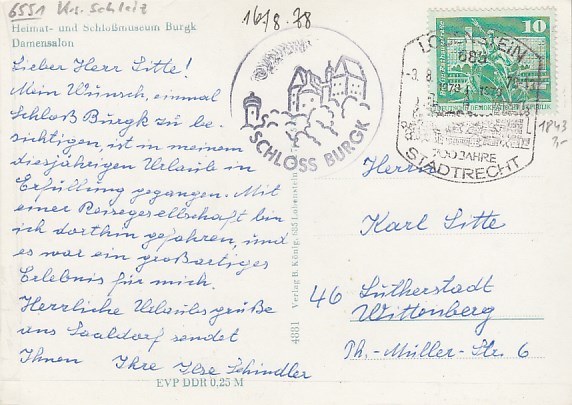 6551 Krs. Schleiz
16/8.78
Heimat- und Schloßmuseum Burgk
Damensalon
Lieber Herr Sitte!
Mein Wunsch, einmal
Schloß Burgk zu be-
sichtigen, ist in meinem
diesjährigen Urlaub in
Erfüllung gegangen. Mit
einer Reisegesellschaft bin
ich dorthin gefahren, und
es war ein großartiges
Erlebnis für mich.
Herzliche Urlaubsgrüße
aus Saaldorf sendet
Ihnen Ihre Ilse Schindler
EVP DDR 0,25 M
4881 Verlag B. König, 685 Lobenstein
SCHLOSS BURGK
10
LOBENSTEIN
685
700 JAHRE
STADTRECHT
1843
3,-
Herrn
Karl Sitte
46 Lutherstadt
Wittenberg
Th.-Müller-Str. 6